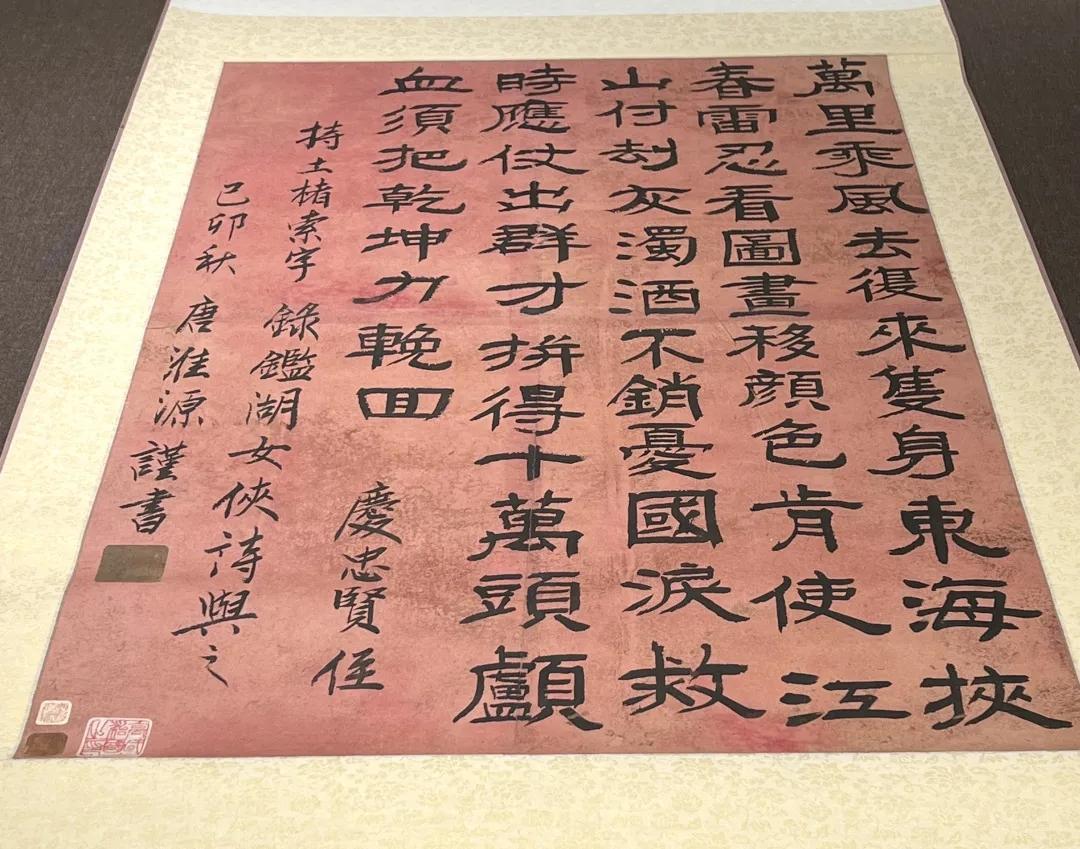 萬里乘風去復來隻身東海挾
春雷忍看圖畫移顏色肯使江
山付刦灰濁酒不銷憂國淚救
時應仗出群才拚得十萬頭顱
血須把乾坤力輓回
慶忠賢侄
持土楮索字錄鑑湖女俠詩與之
己卯秋唐淮源謹書